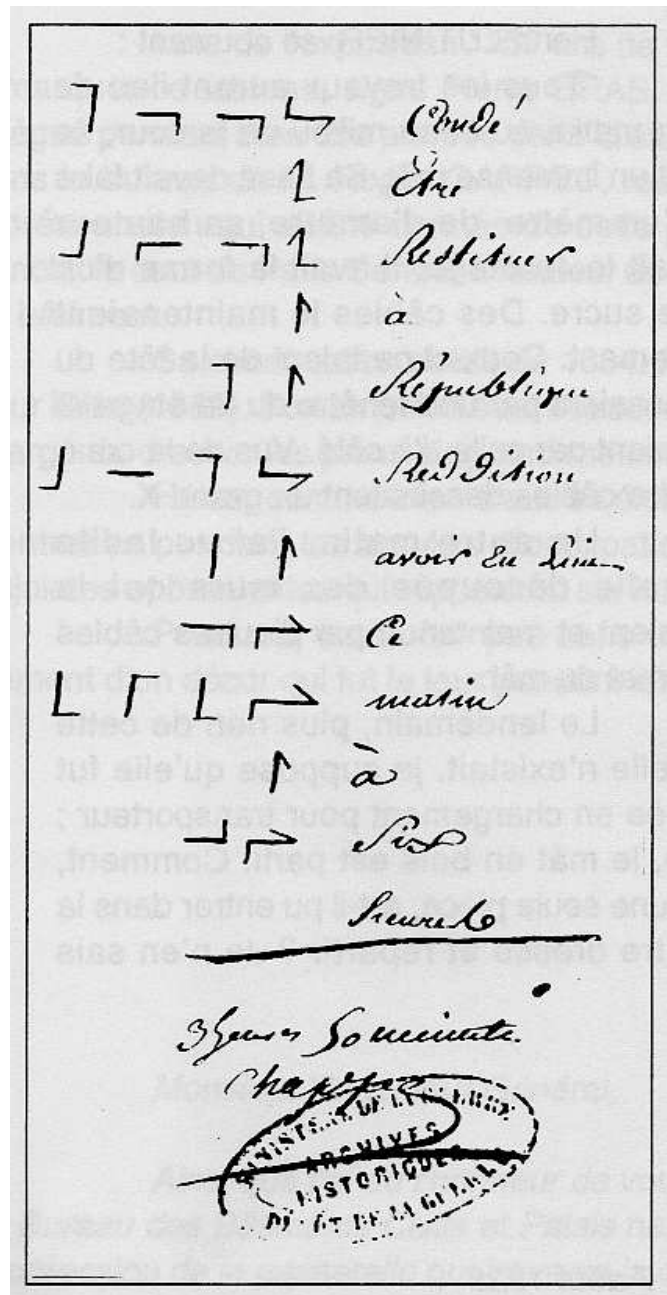 Condé
Être
Restituer
à
République
Reddition
avoir eu lieu
Ce
matin
à
Six
heures
3 heures 50 minutes
Chappe
MINISTERE DE LA GUERRE
ARCHIVES
HISTORIQUES
DE LA GUERRE